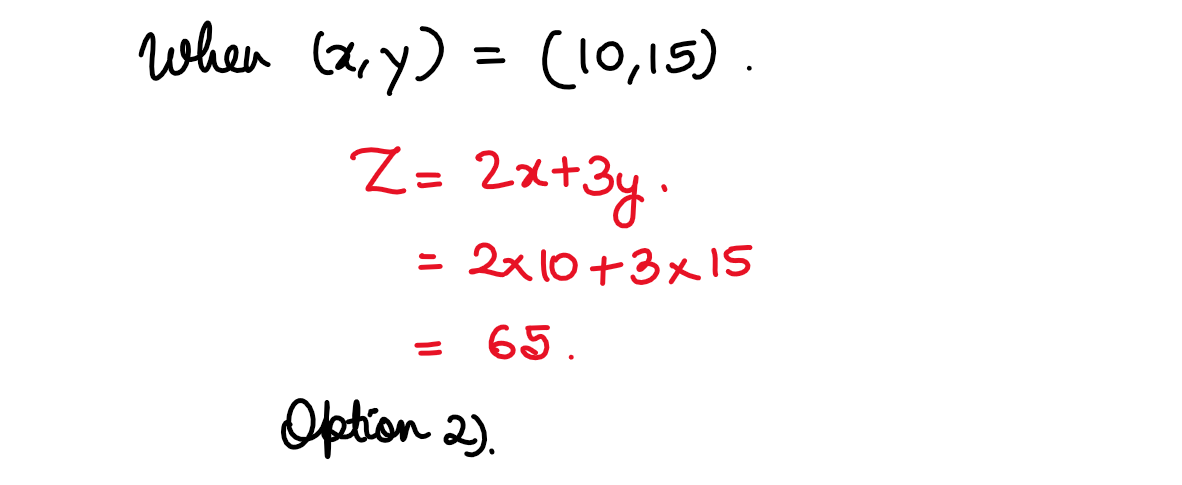 When (x, y) = (10,15) .
Z = 2x+3y .
= 2x10+3x15
= 65 .
Option 2).